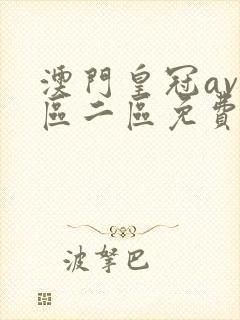 澳門皇冠av
區二區免費
波拏巴